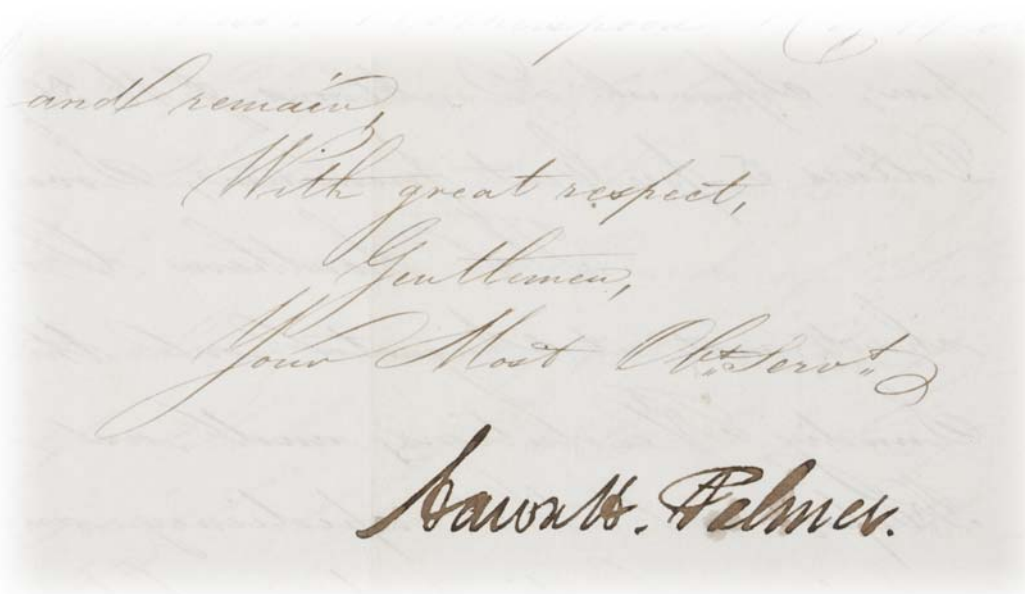 and remain,
With great respect,
Gentlemen,
Your Most Obt. Servt.
Aaron H. Palmer.